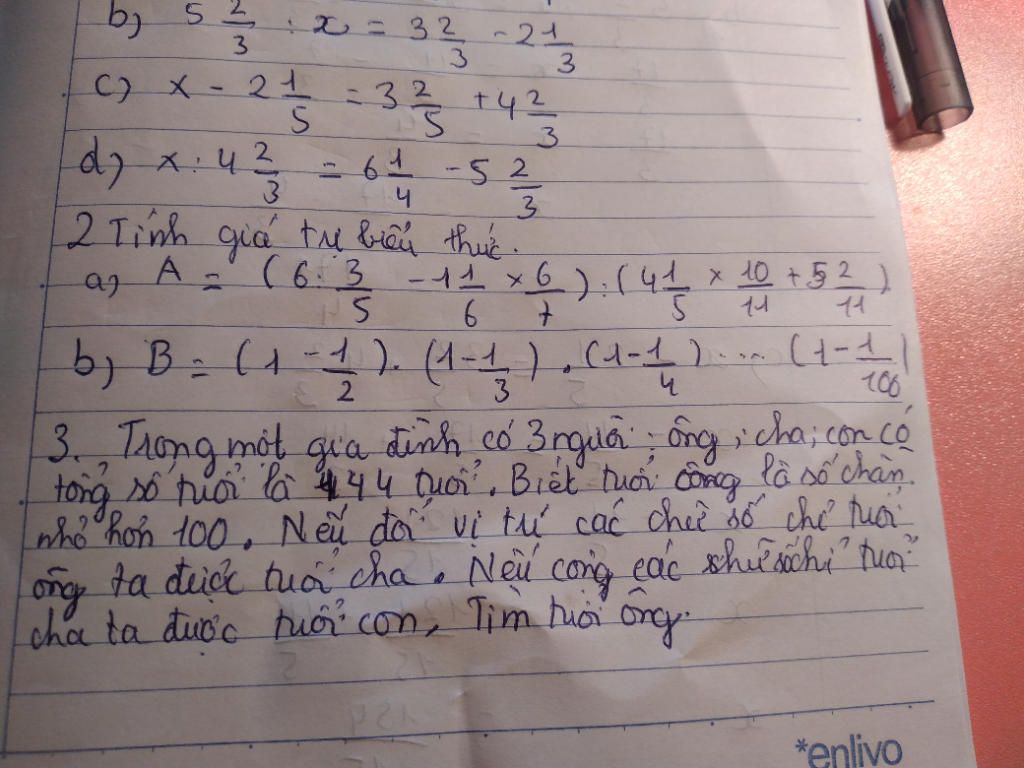 b) 5 2/3 : x = 3 2/3 - 2 1/3
c) x - 2 1/5 = 3 2/5 + 4 2/3
d) x : 4 2/3 = 6 1/4 - 5 2/3
2 Tính giá trị biểu thức.
a) A = (6 : 3/5 - 1 1/6 × 6/7) : (4 1/5 × 10/11 + 5 2/11)
b) B = (1 - 1/2) . (1 - 1/3) . (1 - 1/4) ... (1 - 1/100)
3. Trong một gia đình có 3 người : ông ; cha ; con có
tổng số tuổi là 144 tuổi. Biết tuổi ông là số chẵn
nhỏ hơn 100. Nếu đổi vị trí các chữ số chỉ tuổi
ông ta được tuổi cha. Nếu cộng các chữ số chỉ tuổi
cha ta được tuổi con, Tìm tuổi ông.
*enlivo